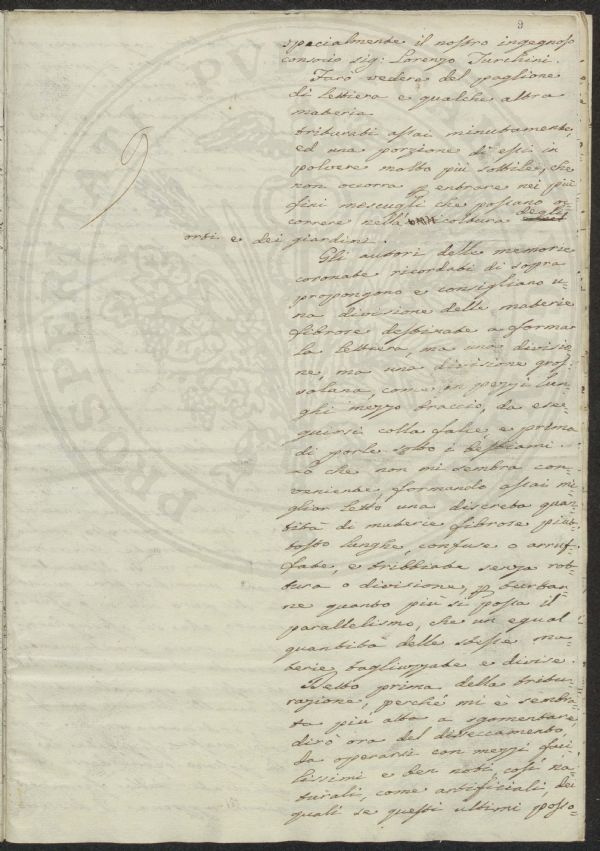 9
specialmente il nostro ingegnoso
consocio sig: Lorenzo Turchini.
Farò vedere del paglione
di lettiera e qualche altra
materia
triturati assai minutamente,
ed una porzione di essi in
polvere molto più sottile, che
non occorra p entrare nei più
fini mescugli che possano oc
correre nella coltura degli
orti e dei giardini.
Gli autori delle memorie
coronate ricordati di sopra
propongono e consigliano u=
na divisione delle materie
fibrose destinate a forma
la lettiera, ma una divisio
ne, ma una divisione gros=
solana, come in pezzi lun
ghi mezzo braccio, da ese=
guirsi colla falce, e prima
di porle sotto i bestiami.
ciò che non mi sembra con=
veniente, formando assai mi
glior letto una discreta quan
tità di materie fibrose piut
tosto lunghe, confuse o arruf=
fate, e tribbiate senza rot
tura o divisione, p turbar
ne quanto più si possa il
parallelismo, che un egual
quantità delle stesse ma=
terie tagliuzzate e divise.
Detto prima della tritu=
razione, perché mi è sembra
ta più atta a sgomentare,
dirò ora del disseccamento,
da operarsi con mezzi faci
lissimi e ben noti, così na
turali, come artificiali, dei
quali se questi ultimi posso=
PROSPERITATI PVBLICAE